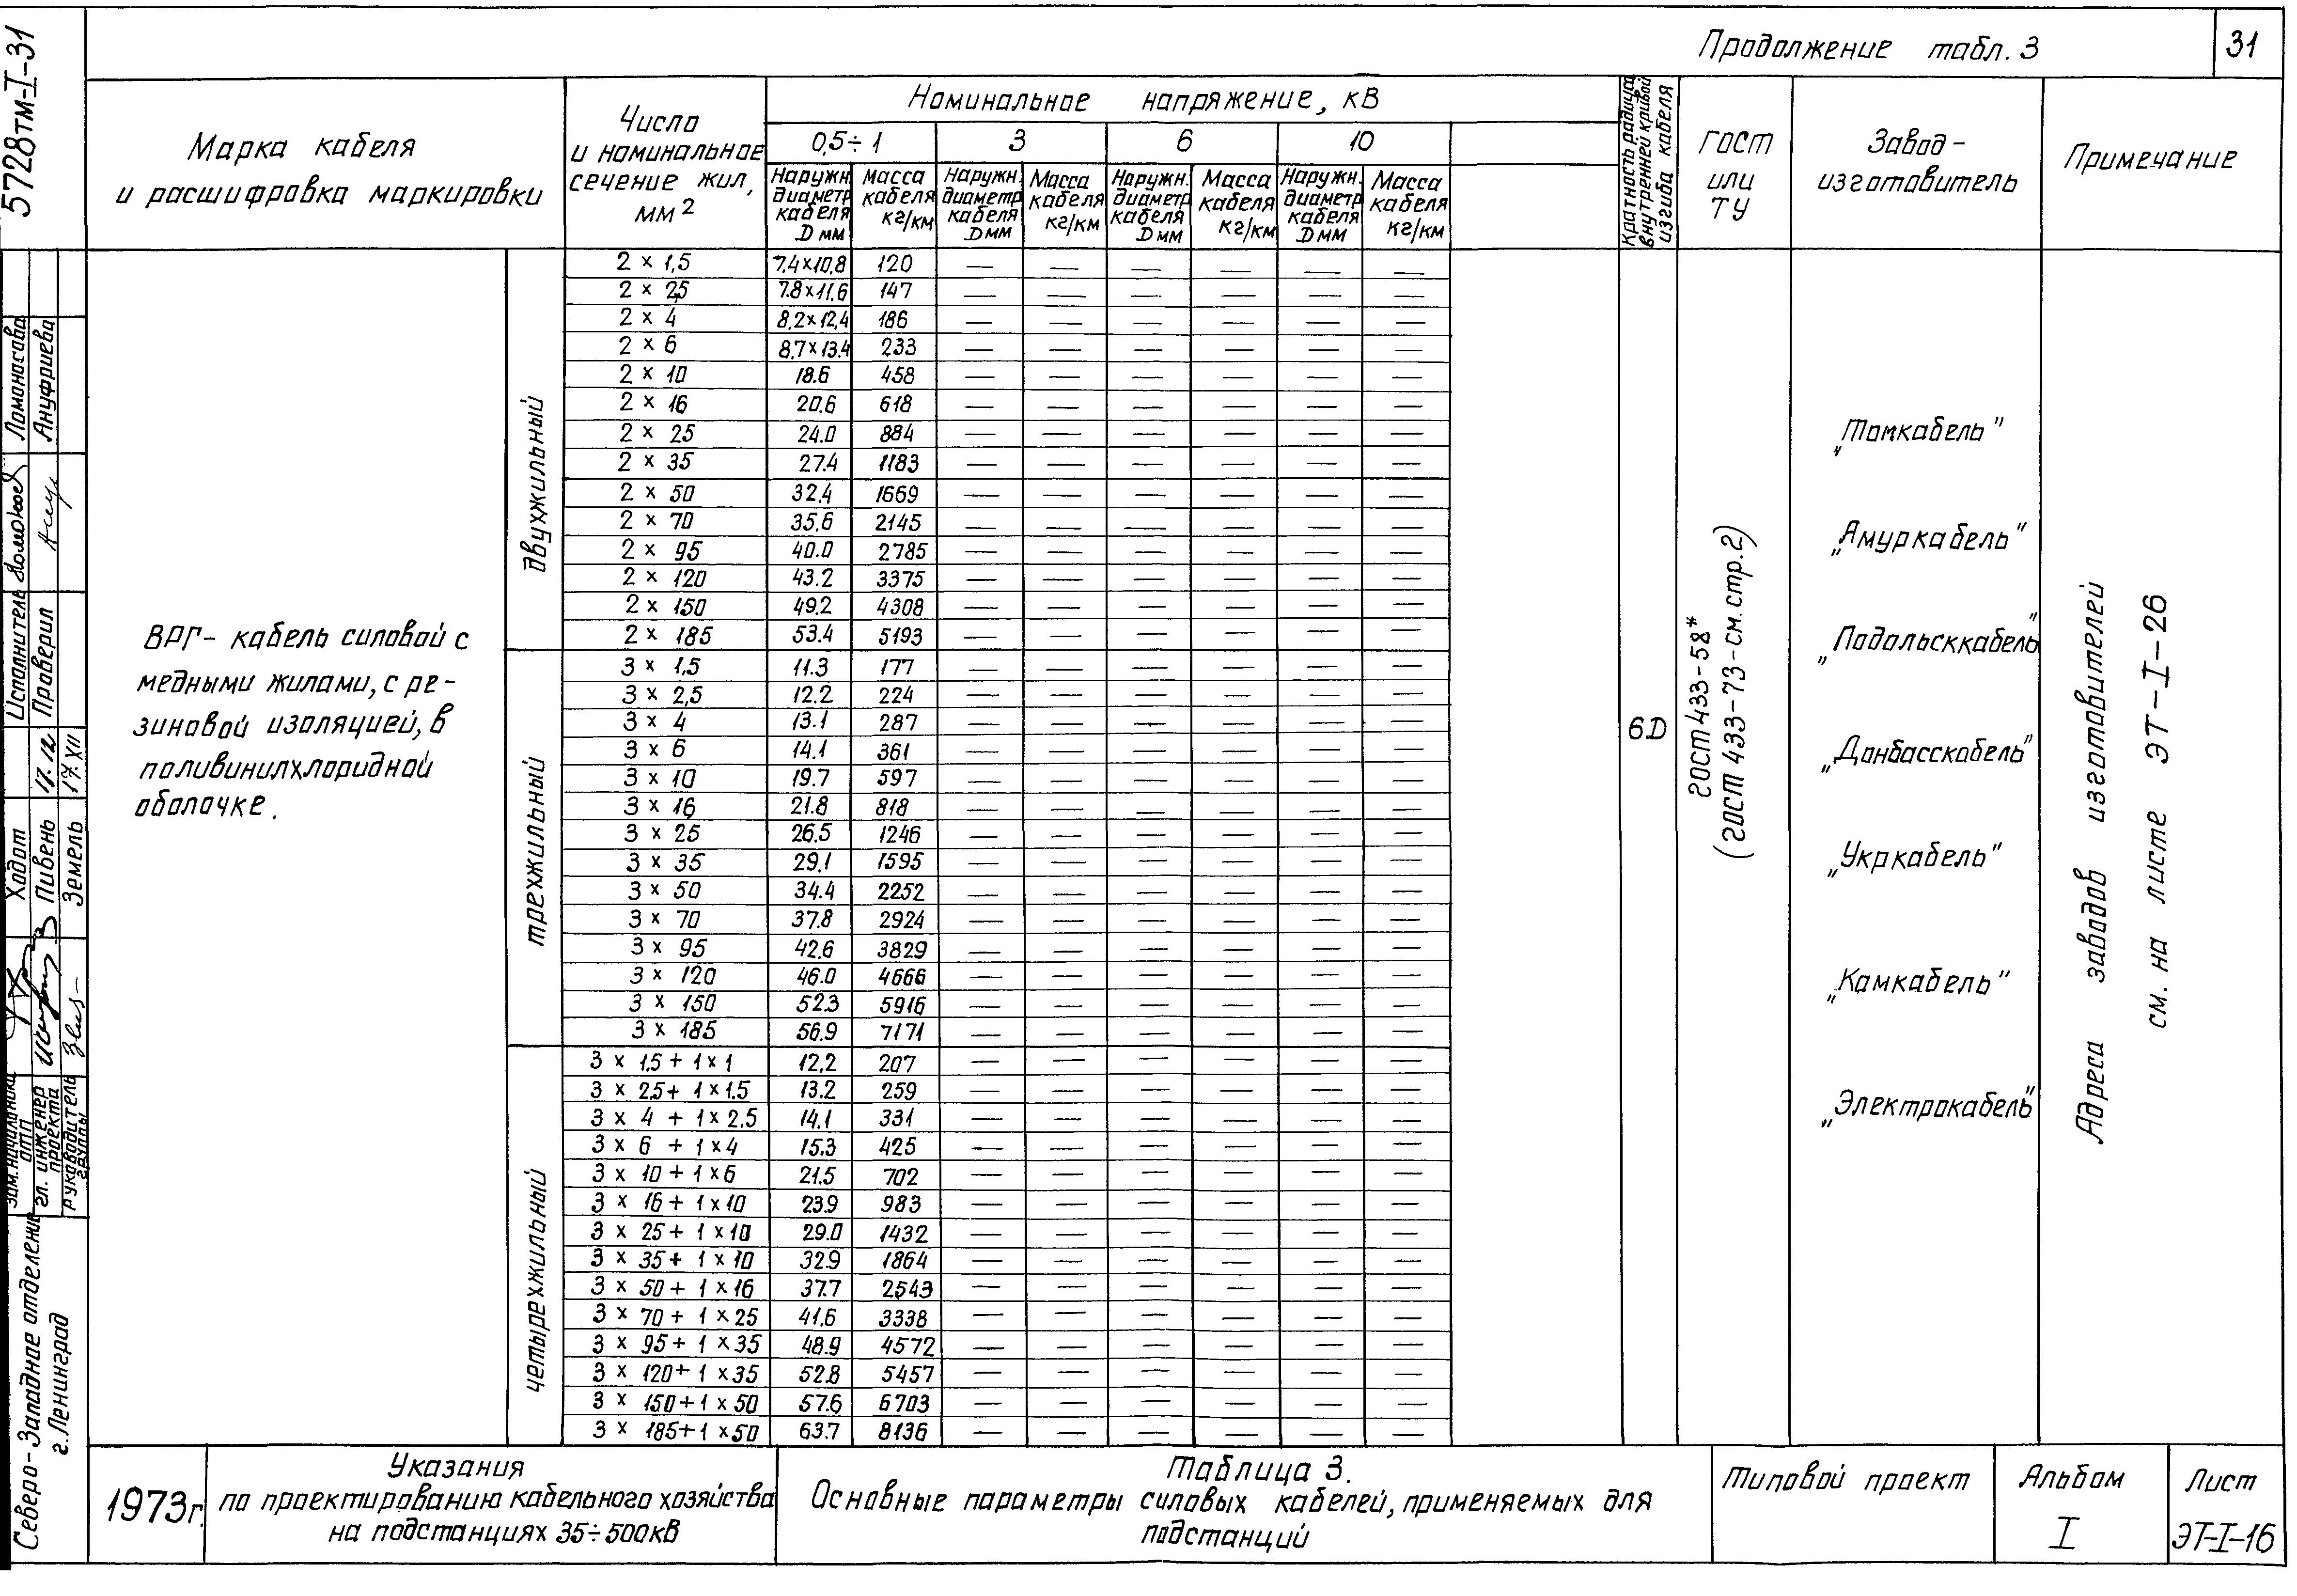 5728тм-I-31
Продолжение табл. 3
31
Марка кабеля
и расшифровка маркировки
Число
и номинальное
сечение жил,
мм 2
Номинальное напряжение, кВ
0,5÷1 3 6 10
Наружн. диаметр кабеля D мм
Масса кабеля кг/км
Наружн. диаметр кабеля D мм
Масса кабеля кг/км
Наружн. диаметр кабеля D мм
Масса кабеля кг/км
Наружн. диаметр кабеля D мм
Масса кабеля кг/км
Кратность радиуса
внутренней кривой
изгиба кабеля
ГОСТ
или
ТУ
Завод-
изготовитель
Примечание
ВРГ- кабель силовой с
медными жилами, с ре-
зиновой изоляцией, в
поливинилхлоридной
оболочке.
двухжильный
2 × 1,5 7.4×10,8 120 — — — — — —
2 × 2,5 7.8×11.6 147 — — — — — —
2 × 4 8,2×12,4 186 — — — — — —
2 × 6 8,7×13.4 233 — — — — — —
2 × 10 18.6 458 — — — — — —
2 × 16 20.6 618 — — — — — —
2 × 25 24.0 884 — — — — — —
2 × 35 27.4 1183 — — — — — —
2 × 50 32.4 1669 — — — — — —
2 × 70 35,6 2145 — — — — — —
2 × 95 40.0 2785 — — — — — —
2 × 120 43.2 3375 — — — — — —
2 × 150 49.2 4308 — — — — — —
2 × 185 53.4 5193 — — — — — —
трехжильный
3 × 1,5 11.3 177 — — — — — —
3 × 2,5 12.2 224 — — — — — —
3 × 4 13.1 287 — — — — — —
3 × 6 14.1 361 — — — — — —
3 × 10 19.7 597 — — — — — —
3 × 16 21.8 818 — — — — — —
3 × 25 26.5 1246 — — — — — —
3 × 35 29,1 1595 — — — — — —
3 × 50 34.4 2252 — — — — — —
3 × 70 37.8 2924 — — — — — —
3 × 95 42.6 3829 — — — — — —
3 × 120 46.0 4666 — — — — — —
3 × 150 52.3 5916 — — — — — —
3 × 185 56.9 7171 — — — — — —
четырехжильный
3 × 1,5 + 1×1 12,2 207 — — — — — —
3 × 2,5 + 1×1.5 13.2 259 — — — — — —
3 × 4 + 1×2.5 14.1 331 — — — — — —
3 × 6 + 1×4 15.3 425 — — — — — —
3 × 10 + 1×6 21.5 702 — — — — — —
3 × 16 + 1×10 23.9 983 — — — — — —
3 × 25 + 1×10 29.0 1432 — — — — — —
3 × 35 + 1×10 32.9 1864 — — — — — —
3 × 50 + 1×16 37.7 2543 — — — — — —
3 × 70 + 1×25 41.6 3338 — — — — — —
3 × 95 + 1×35 48.9 4572 — — — — — —
3 × 120 + 1×35 52.8 5457 — — — — — —
3 × 150 + 1×50 57.6 6703 — — — — — —
3 × 185 + 1×50 63.7 8136 — — — — — —
6D
ГОСТ 433-58*
(ГОСТ 433-73-см.стр.2)
„Томкабель"
„Амуркабель"
„Подольсккабель"
„Донбасскабель"
„Укркабель"
„Камкабель"
„Электрокабель"
Адреса заводов изготовителей
см. на листе ЭТ-I-26
Исполнитель Ломанасова
Проверил Ануфриева
17.12
17.XII
зам. начальника ОТП Хадот
гл. инженер проекта Пивень
руководитель группы Земель
Северо-Западное отделение
г. Ленинград
1973г.
Указания
по проектированию кабельного хозяйства
на подстанциях 35÷500кВ
Таблица 3.
Основные параметры силовых кабелей, применяемых для
подстанций
Типовой проект
Альбом
I
Лист
ЭТ-I-16